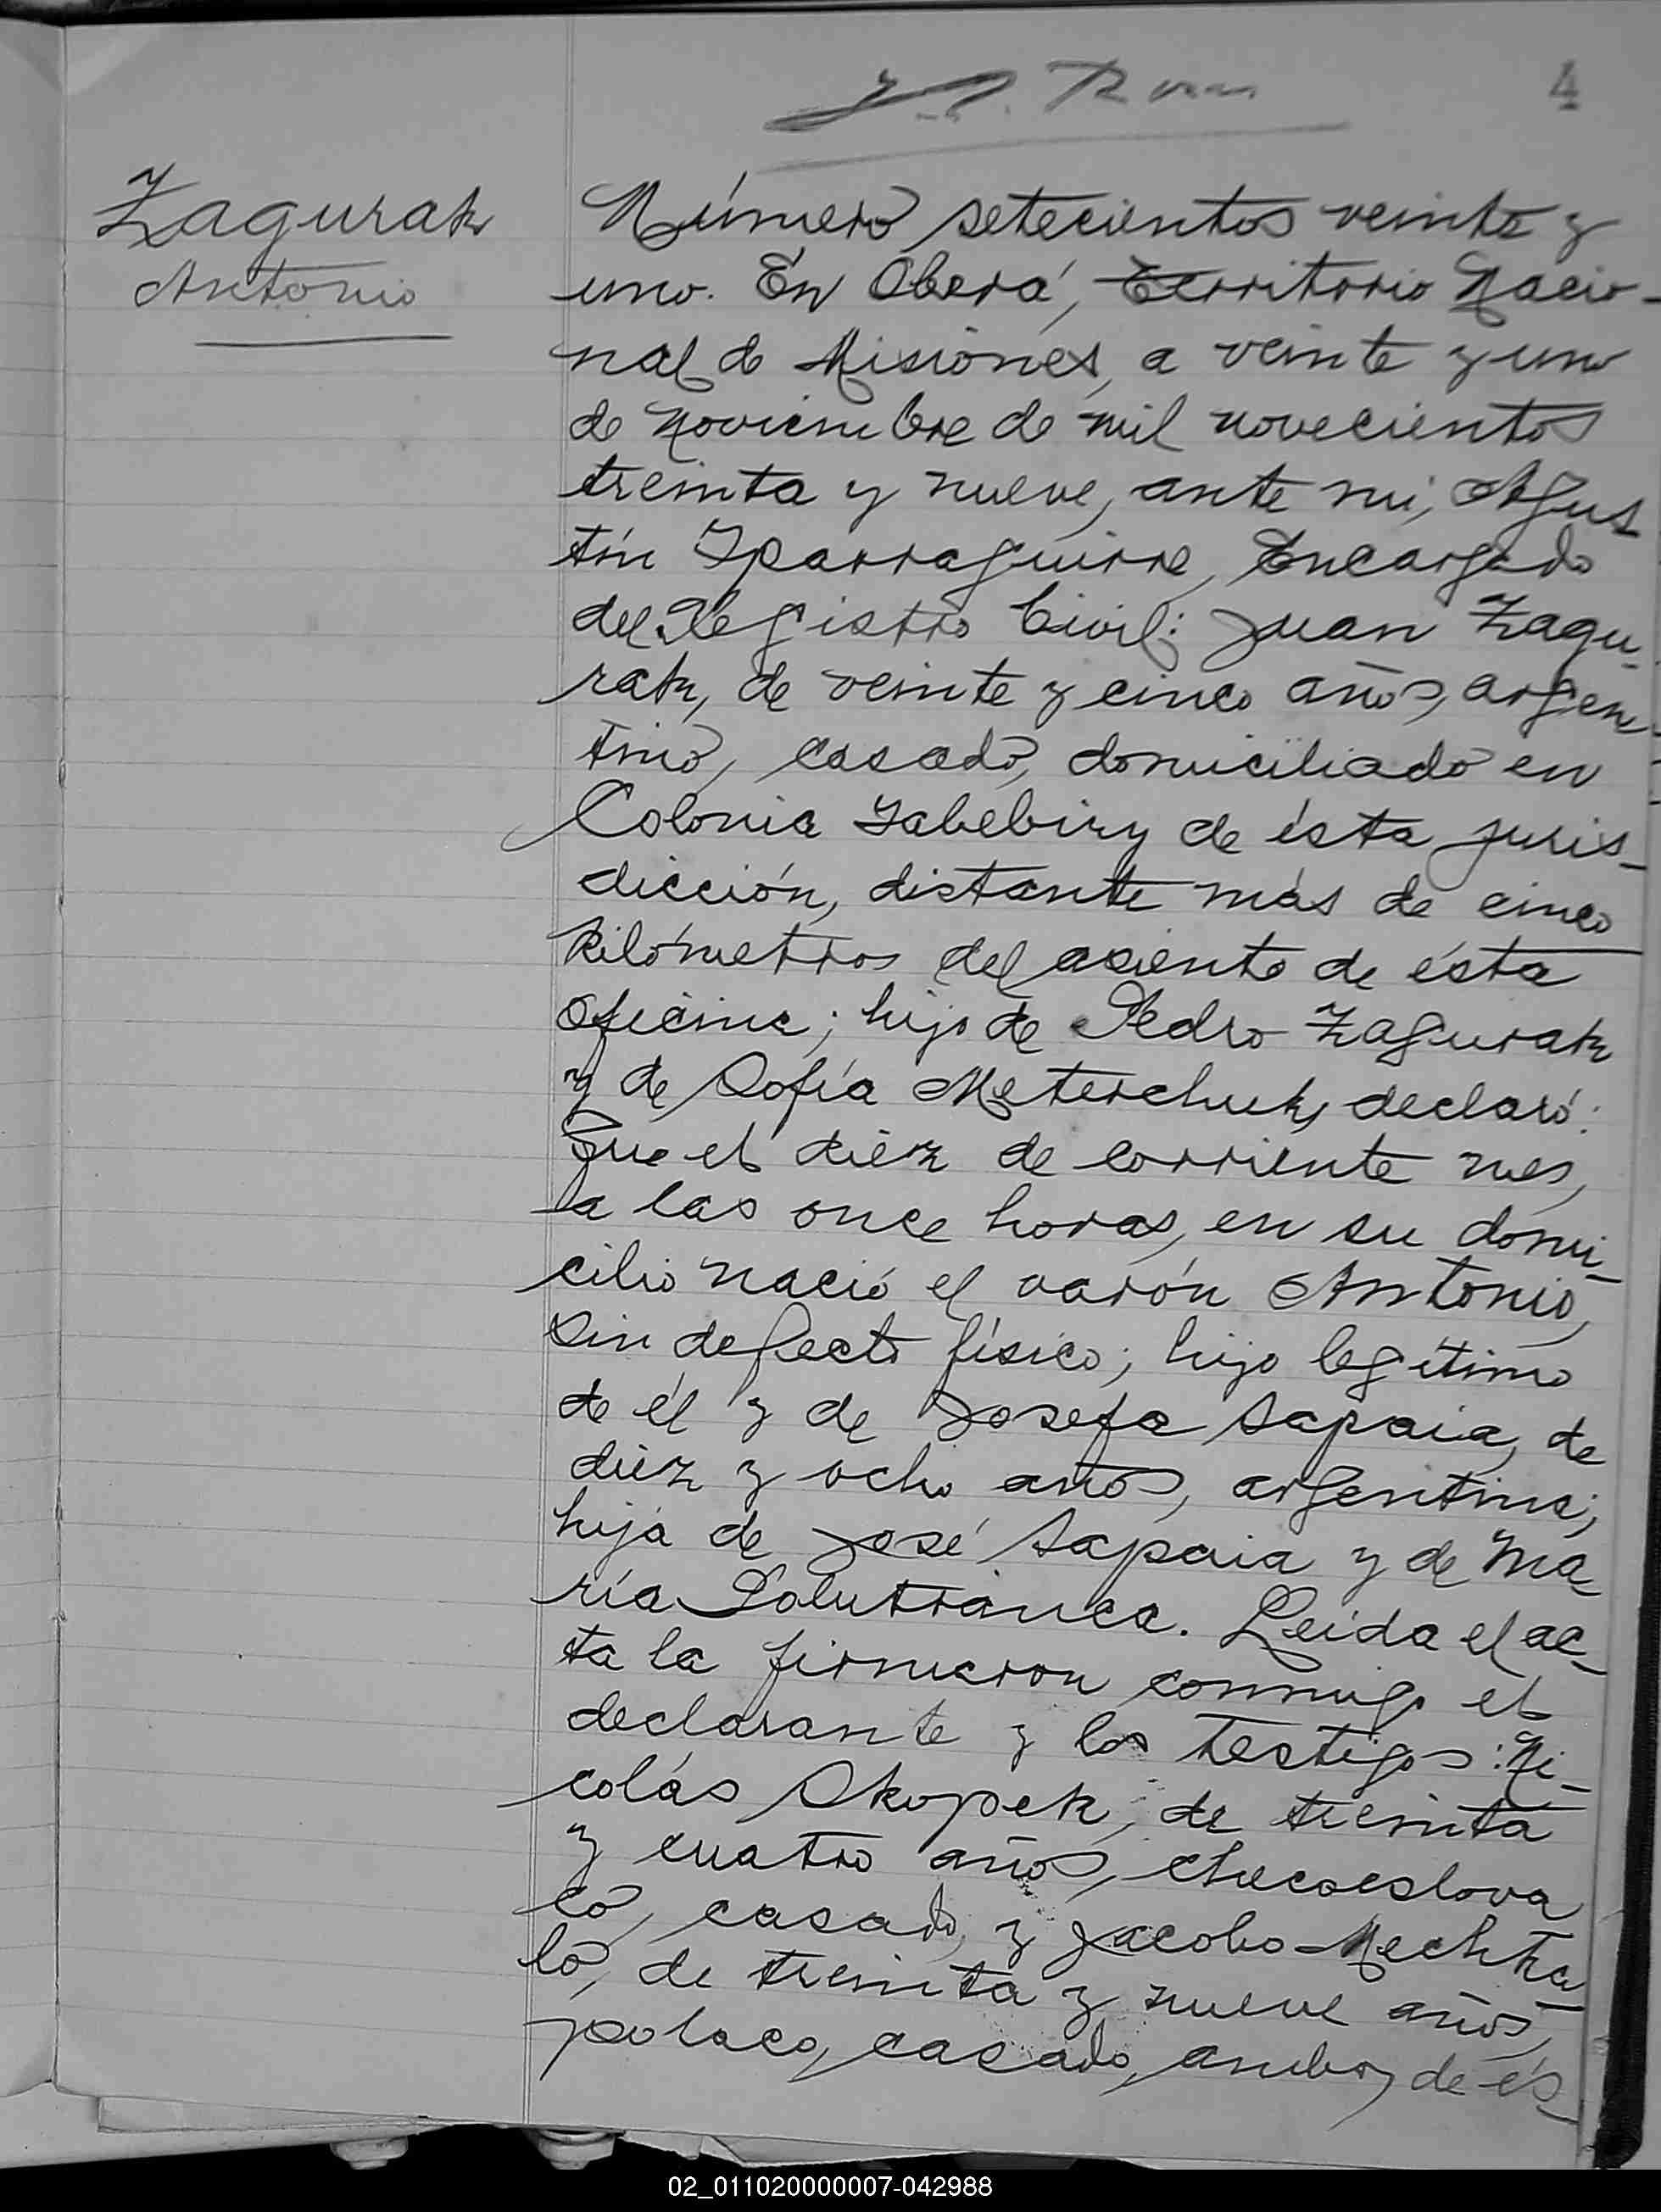 4
Zagurak
Antonio
Número setecientos veinte y
uno. En Oberá, Territorio Nacio-
nal de Misiones, a veinte y uno
de Noviembre de mil novecientos
treinta y nueve, ante mi, Agus
tín Yparraguirre, Encargado
del Registro Civil: Juan Zagu-
rak, de veinte y cinco años, argen-
tino, casado, domiciliado en
Colonia Yabebiry de ésta juris-
dicción, distante más de cinco
kilómetros del asiento de ésta
oficina; hijo de Pedro Zagurak
y de Sofía Meterchuk, declaró:
Que el diéz de corriente mes,
a las once horas, en su domi-
cilio nació el varón Antonio,
sin defecto físico; hijo legítimo
de él y de Josefa Sapaia, de
diéz y ocho años, argentina;
hija de José Sapaia y de Ma-
ría Polutranca. Leída el ac-
ta la firmaron conmigo el
declarante y los testigos: Ni-
colás Skopek, de treinta
y cuatro años, checoeslova
co, casado, y Jacobo Mechta
lo, de treinta y nueve años,
polaco, casado, ambos de és-
02_011020000007-042988